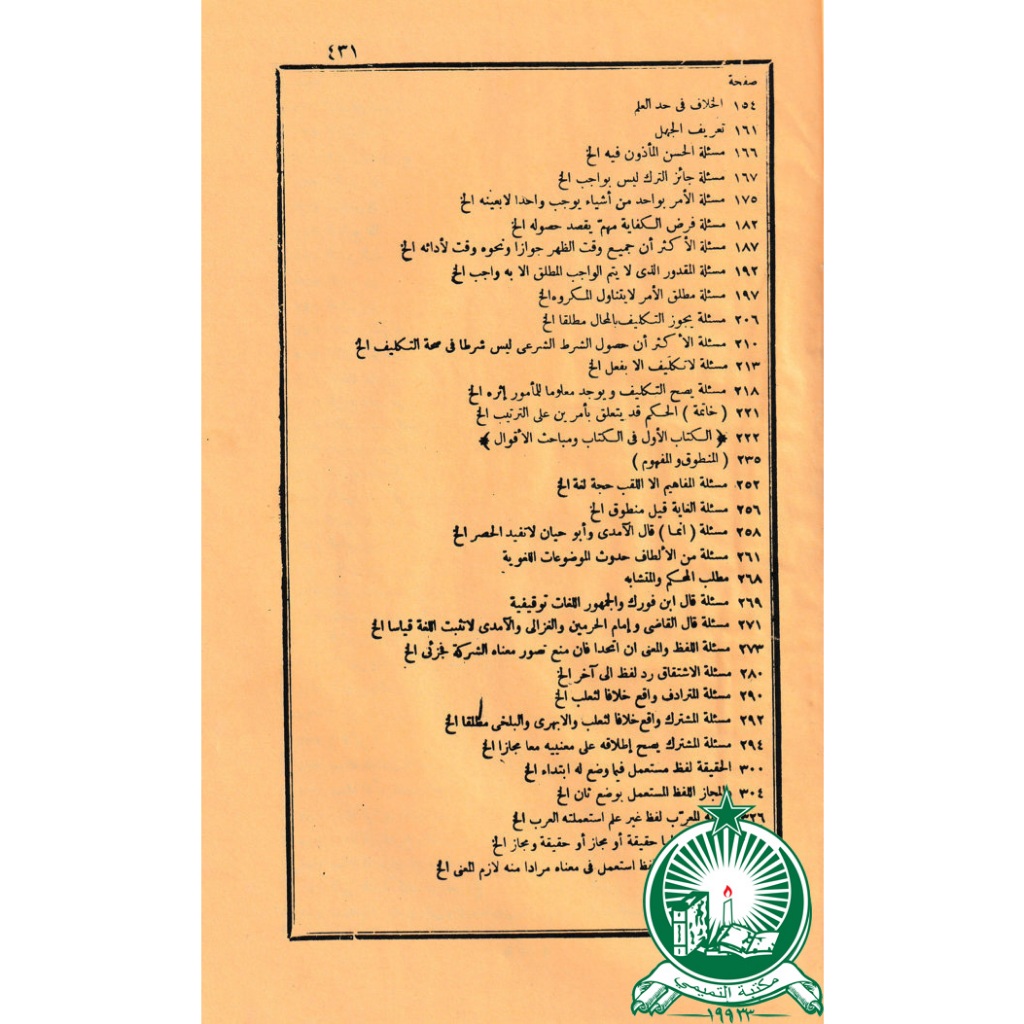 ٤٣١
صفحة
١٥٤ الخلاف فى حد العلم
١٦١ تعريف الجهل
١٦٦ مسئلة الحسن المأذون فيه الخ
١٦٧ مسئلة جائز الترك ليس بواجب الخ
١٧٥ مسئلة الأمر بواحد من أشياء يوجب واحدا لابعينه الخ
١٨٢ مسئلة فرض الكفاية مهمّ يقصد حصوله الخ
١٨٧ مسئلة الأكثر أن جميع وقت الظهر جوازا ونحوه وقت لأدائه الخ
١٩٢ مسئلة المقدور الذى لا يتم الواجب المطلق الا به واجب الخ
١٩٧ مسئلة مطلق الأمر لايتناول المكروه الخ
٢٠٦ مسئلة يجوز التكليف بالمحال مطلقا الخ
٢١٠ مسئلة الأكثر أن حصول الشرط الشرعى ليس شرطا فى صحة التكليف الخ
٢١٣ مسئلة لاتكليف الا بفعل الخ
٢١٨ مسئلة يصح التكليف ويوجد معلوما للمأمور إثره الخ
٢٢١ ( خاتمة ) الحكم قد يتعلق بأمرين على الترتيب الخ
٢٢٢ ﴿ الكتاب الأول فى الكتاب ومباحث الأقوال ﴾
٢٣٥ ( المنطوق والمفهوم )
٢٥٢ مسئلة المفاهيم الا اللقب حجة لغة الخ
٢٥٦ مسئلة الغاية قيل منطوق الخ
٢٥٨ مسئلة ( انما ) قال الآمدى وأبو حيان لاتفيد الحصر الخ
٢٦١ مسئلة من الألطاف حدوث الموضوعات اللغوية
٢٦٨ مطلب المحكم والمتشابه
٢٦٩ مسئلة قال ابن فورك والجمهور اللغات توقيفية
٢٧١ مسئلة قال القاضى وإمام الحرمين والغزالى والآمدى لاتثبت اللغة قياسا الخ
٢٧٣ مسئلة اللفظ والمعنى ان اتحدا فان منع تصور معناه الشركة فجزئى الخ
٢٨٠ مسئلة الاشتقاق رد لفظ الى آخر الخ
٢٩٠ مسئلة المترادف واقع خلافا لثعلب الخ
٢٩٢ مسئلة المشترك واقع خلافا لثعلب والابهرى والبلخى مطلقا الخ
٢٩٤ مسئلة المشترك يصح إطلاقه على معنييه معا مجازا الخ
٣٠٠ الحقيقة لفظ مستعمل فيما وضع له ابتداء الخ
٣٠٤ المجاز اللفظ المستعمل بوضع ثان الخ
٣٢٦ المعرّب لفظ غير علم استعملته العرب الخ
حقيقة أو مجاز أو حقيقة ومجاز الخ
استعمل فى معناه مرادا منه لازم المعنى الخ
مكتبة التميمي
١٩٩٣٣